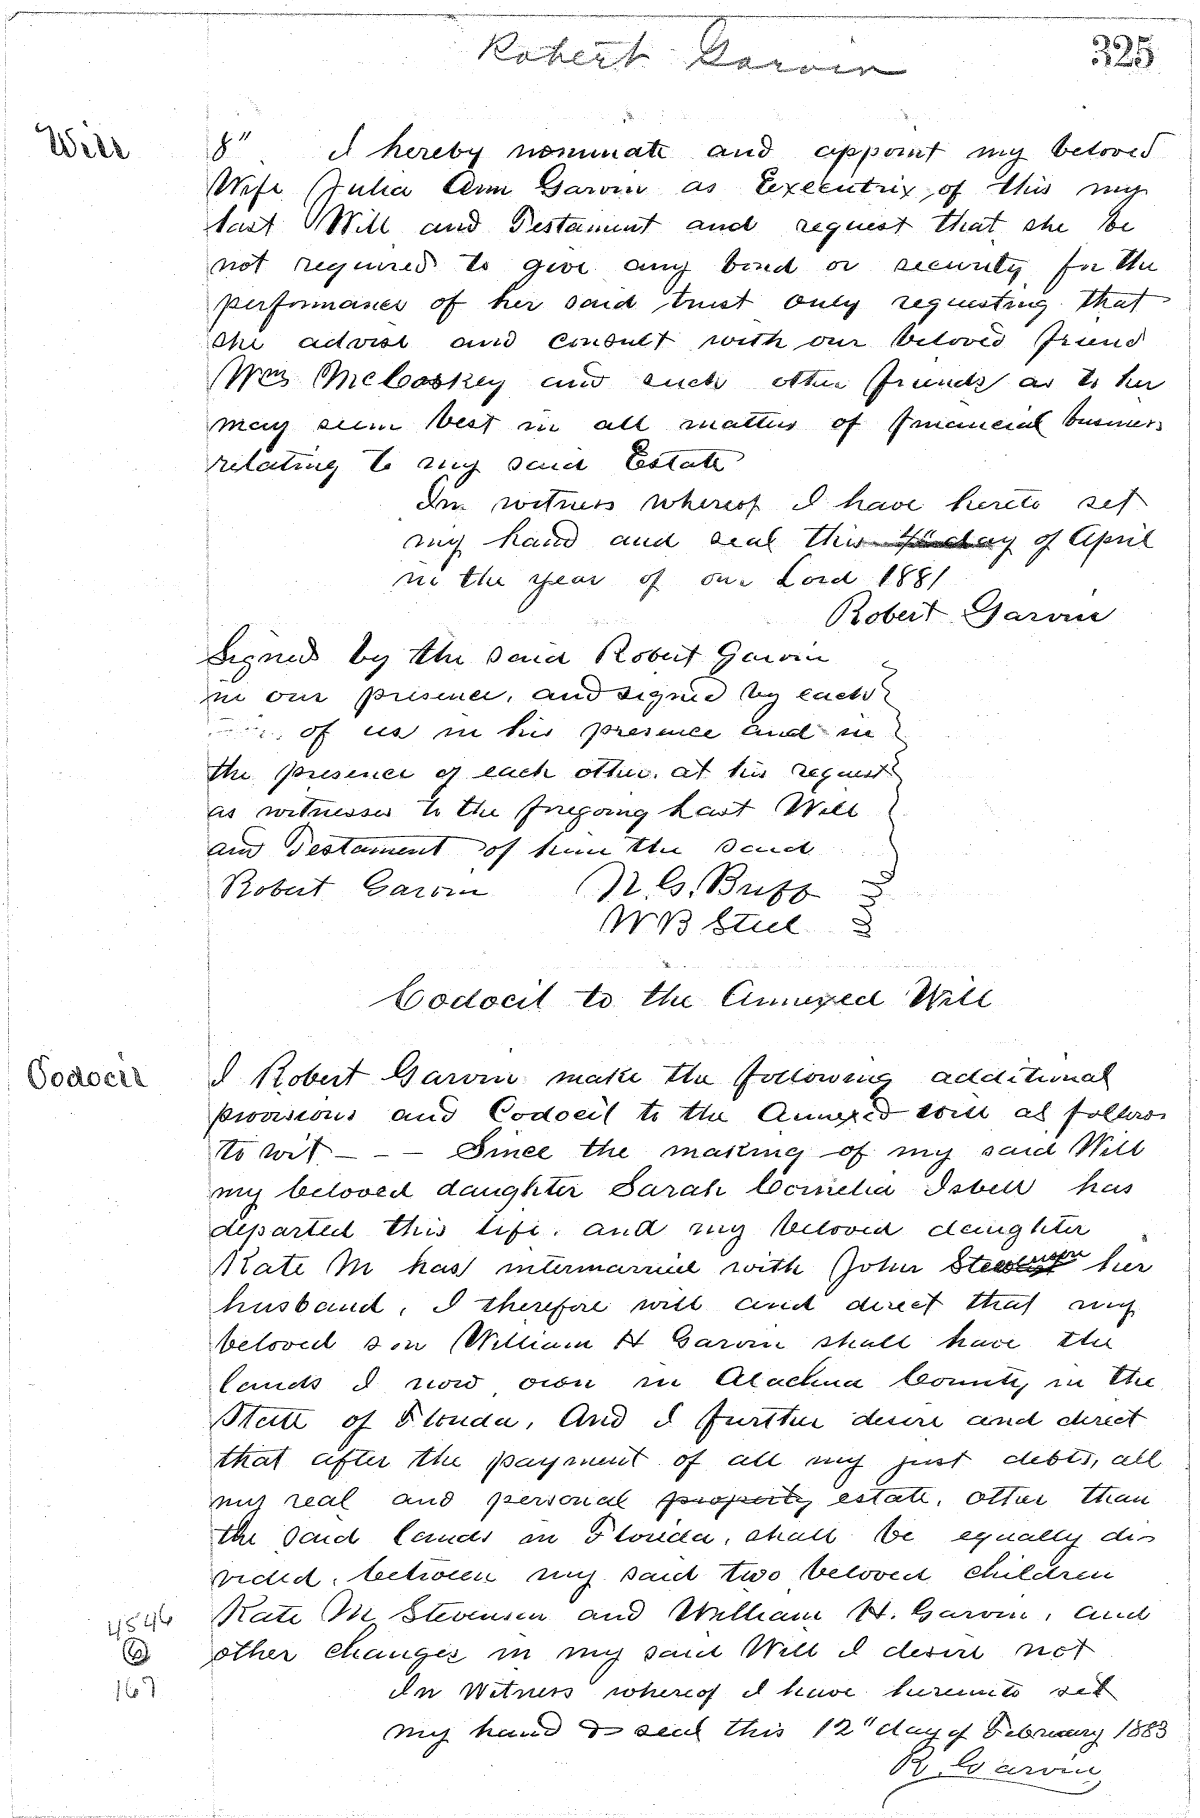 Robert Garvin
325
Will
8" I hereby nominate and appoint my beloved
Wife Julia Ann Garvin as Executrix of this my
last Will and Testament and request that she be
not required to give any bond or security for the
performance of her said trust only requesting that
she advise and consult with our beloved friend
Wm McCaskey and such other friends as to her
may seem best in all matters of financial business
relating to my said Estate
In witness whereof I have hereto set
my hand and seal this day of April
in the year of our Lord 1881
Robert Garvin
Signed by the said Robert Garvin
in our presence, and signed by each
of us in his presence and in
the presence of each other, at his request
as witnesses to the foregoing Last Will
and Testament of him the said
Robert Garvin N. G. Buff
W B Steel
Codocil to the Annexed Will
Codocil
I Robert Garvin make the following additional
provisions and Codocil to the Annexed will as follows
to wit - - - Since the making of my said Will
my beloved daughter Sarah Cornelia Isbell has
departed this life, and my beloved daughter
Kate M has intermarried with John Stevenson her
husband, I therefore will and direct that my
beloved son William H Garvin shall have the
lands I now own in Alachua County in the
State of Florida, And I further desire and direct
that after the payment of all my just debts, all
my real and personal property estate, other than
the said lands in Florida, shall be equally di-
vided, between my said two beloved children
Kate M Stevenson and William H. Garvin, and
other changes in my said Will I desire not
In Witness whereof I have hereunto set
my hand & seal this 12" day of February 1883
R. Garvin
4546
6
167